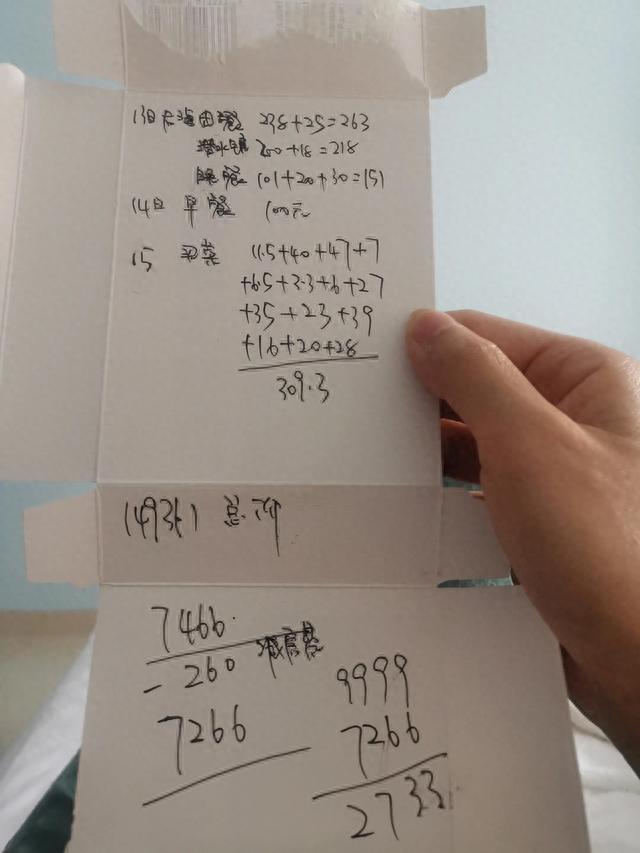 13日 238+25=263
潜水 200+18=218
晚餐 101+20+30=151
14日 早餐 100元
15 买菜 11.5+40+47+7
+6.5+3.3+6+27
+35+23+39
+16+20+28
309.3
14931
7466
-260
7266
9999
7266
2733